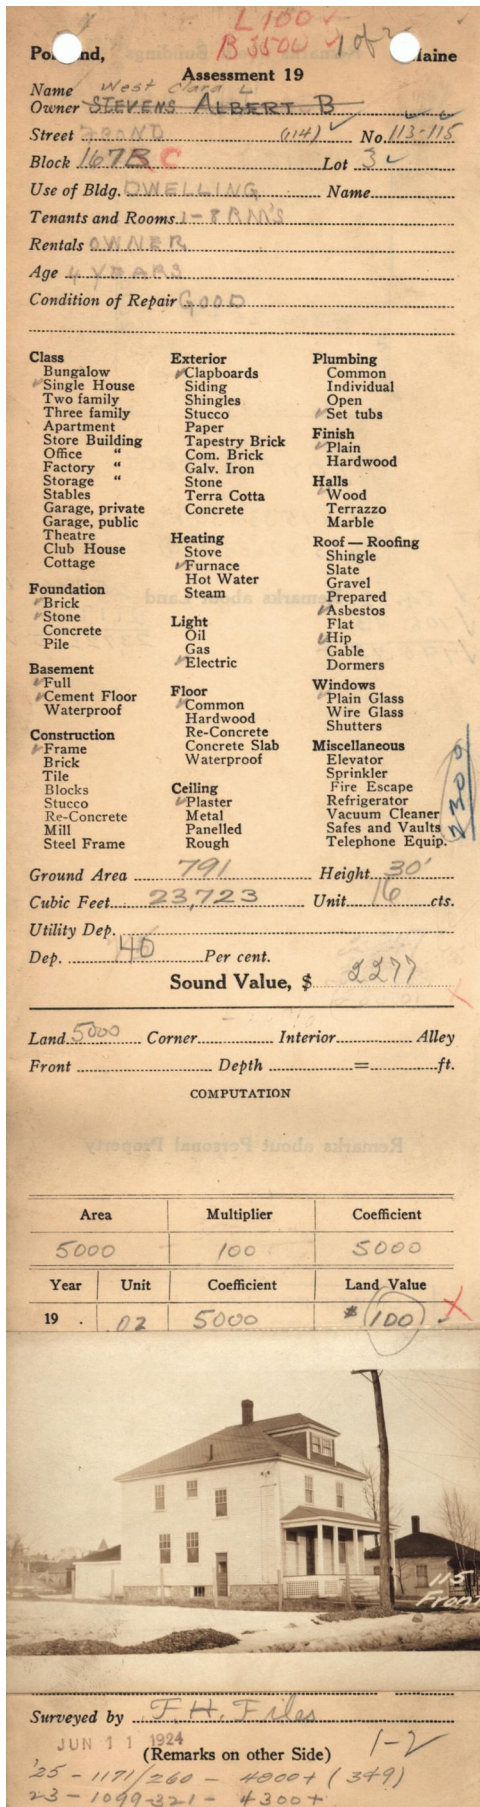 L 100 ✓
B 3500 ✓ 1 of 2
Po nd, aine
Assessment 19
Name West Clara L
Owner STEVENS ALBERT B
Street FROND (114) ✓ No. 113-115
Block 167B C Lot 3 ✓
Use of Bldg. DWELLING Name
Tenants and Rooms 1-8 RM'S
Rentals OWNER
Age 4 YEARS
Condition of Repair GOOD
Class
Bungalow
✓ Single House
Two family
Three family
Apartment
Store Building
Office "
Factory "
Storage "
Stables
Garage, private
Garage, public
Theatre
Club House
Cottage
Foundation
✓ Brick
✓ Stone
Concrete
Pile
Basement
✓ Full
✓ Cement Floor
Waterproof
Construction
✓ Frame
Brick
Tile
Blocks
Stucco
Re-Concrete
Mill
Steel Frame
Exterior
✓ Clapboards
Siding
Shingles
Stucco
Paper
Tapestry Brick
Com. Brick
Galv. Iron
Stone
Terra Cotta
Concrete
Heating
Stove
✓ Furnace
Hot Water
Steam
Light
Oil
Gas
✓ Electric
Floor
✓ Common
Hardwood
Re-Concrete
Concrete Slab
Waterproof
Ceiling
✓ Plaster
Metal
Panelled
Rough
Plumbing
Common
Individual
Open
✓ Set tubs
Finish
✓ Plain
Hardwood
Halls
✓ Wood
Terrazzo
Marble
Roof — Roofing
Shingle
Slate
Gravel
Prepared
✓ Asbestos
Flat
✓ Hip
Gable
Dormers
Windows
✓ Plain Glass
Wire Glass
Shutters
Miscellaneous
Elevator
Sprinkler
Fire Escape
Refrigerator
Vacuum Cleaner
Safes and Vaults
Telephone Equip.
2309
Ground Area 791 Height 30'
Cubic Feet 23,723 Unit 16 cts.
Utility Dep.
Dep. 40 Per cent.
Sound Value, $ 2277
Land 5000 Corner Interior Alley
Front Depth = ft.
COMPUTATION
Area Multiplier Coefficient
5000 100 5000
Year Unit Coefficient Land Value
19 . .02 5000 $ 100
115
Front
Surveyed by F. H. Files
JUN 11 1924
(Remarks on other Side) 1-2
'25 - 1171/260 - 4800+ (349)
23 - 1099-321 - 4300+